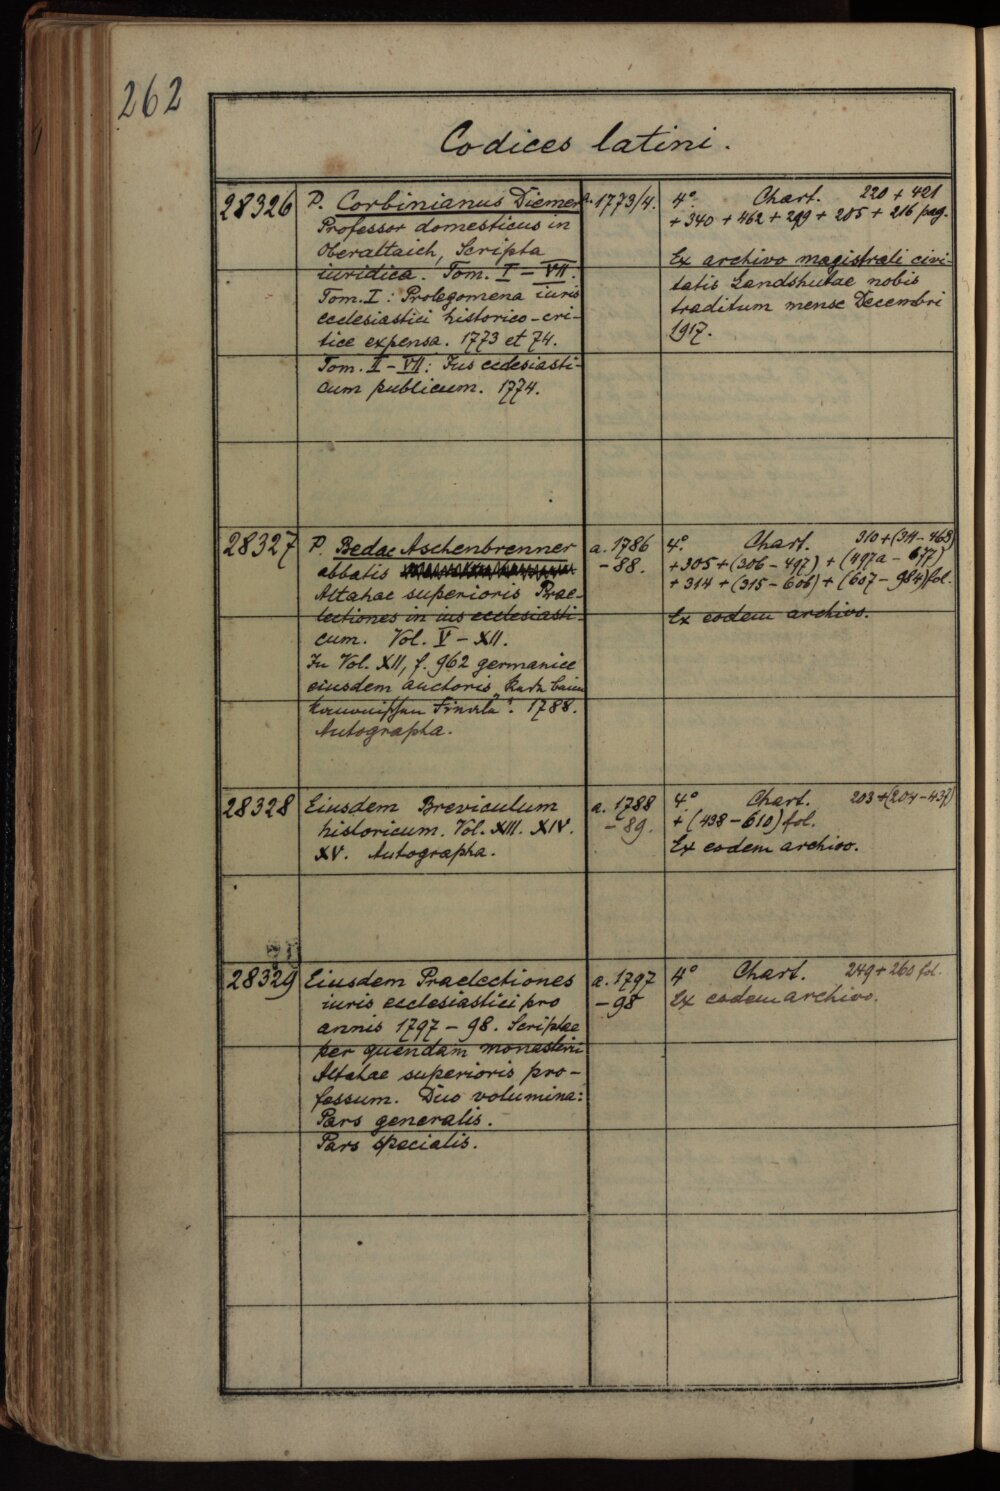 262
Codices latini.
28326
P. Corbinianus Diemer
Professor domesticus in
Oberaltaich, Scripta
iuridica. Tom. I – VII.
Tom. I: Prolegomena iuris
ecclesiastici historico-cri-
tice expensa. 1773 et 74.
Tom. II – VII: Ius ecclesiasti-
cum publicum. 1774.
a. 1773/4.
4° Chart. 220 + 421
+ 340 + 462 + 299 + 205 + 216 pag.
Ex archivo magistrati civi-
tatis Landshutae nobis
traditum mense Decembri
1917.
28327
P. Bedae Aschenbrenner
abbatis
Altahae superioris Prae-
lectiones in ius ecclesiasti-
cum. Vol. V – XII.
In Vol. XII, f. 962 germanice
eiusdem auctoris
1788.
Autographa.
a. 1786
– 88.
4° Chart. 310 + (311 – 468)
+ 305 + (306 – 497) + (497a – 677)
+ 314 + (315 – 606) + (607 – 984) fol.
Ex eodem archivo.
28328
Eiusdem Breviculum
historicum. Vol. XIII. XIV.
XV. Autographa.
a. 1788
– 89.
4° Chart. 203 + (204 – 437)
+ (438 – 610) fol.
Ex eodem archivo.
28329
Eiusdem Praelectiones
iuris ecclesiastici pro
annis 1797 – 98. Scriptae
per quendam monasterii
Altahae superioris pro-
fessum. Duo volumina:
Pars generalis.
Pars specialis.
a. 1797
– 98
4° Chart. 249 + 260 fol.
Ex eodem archivo.